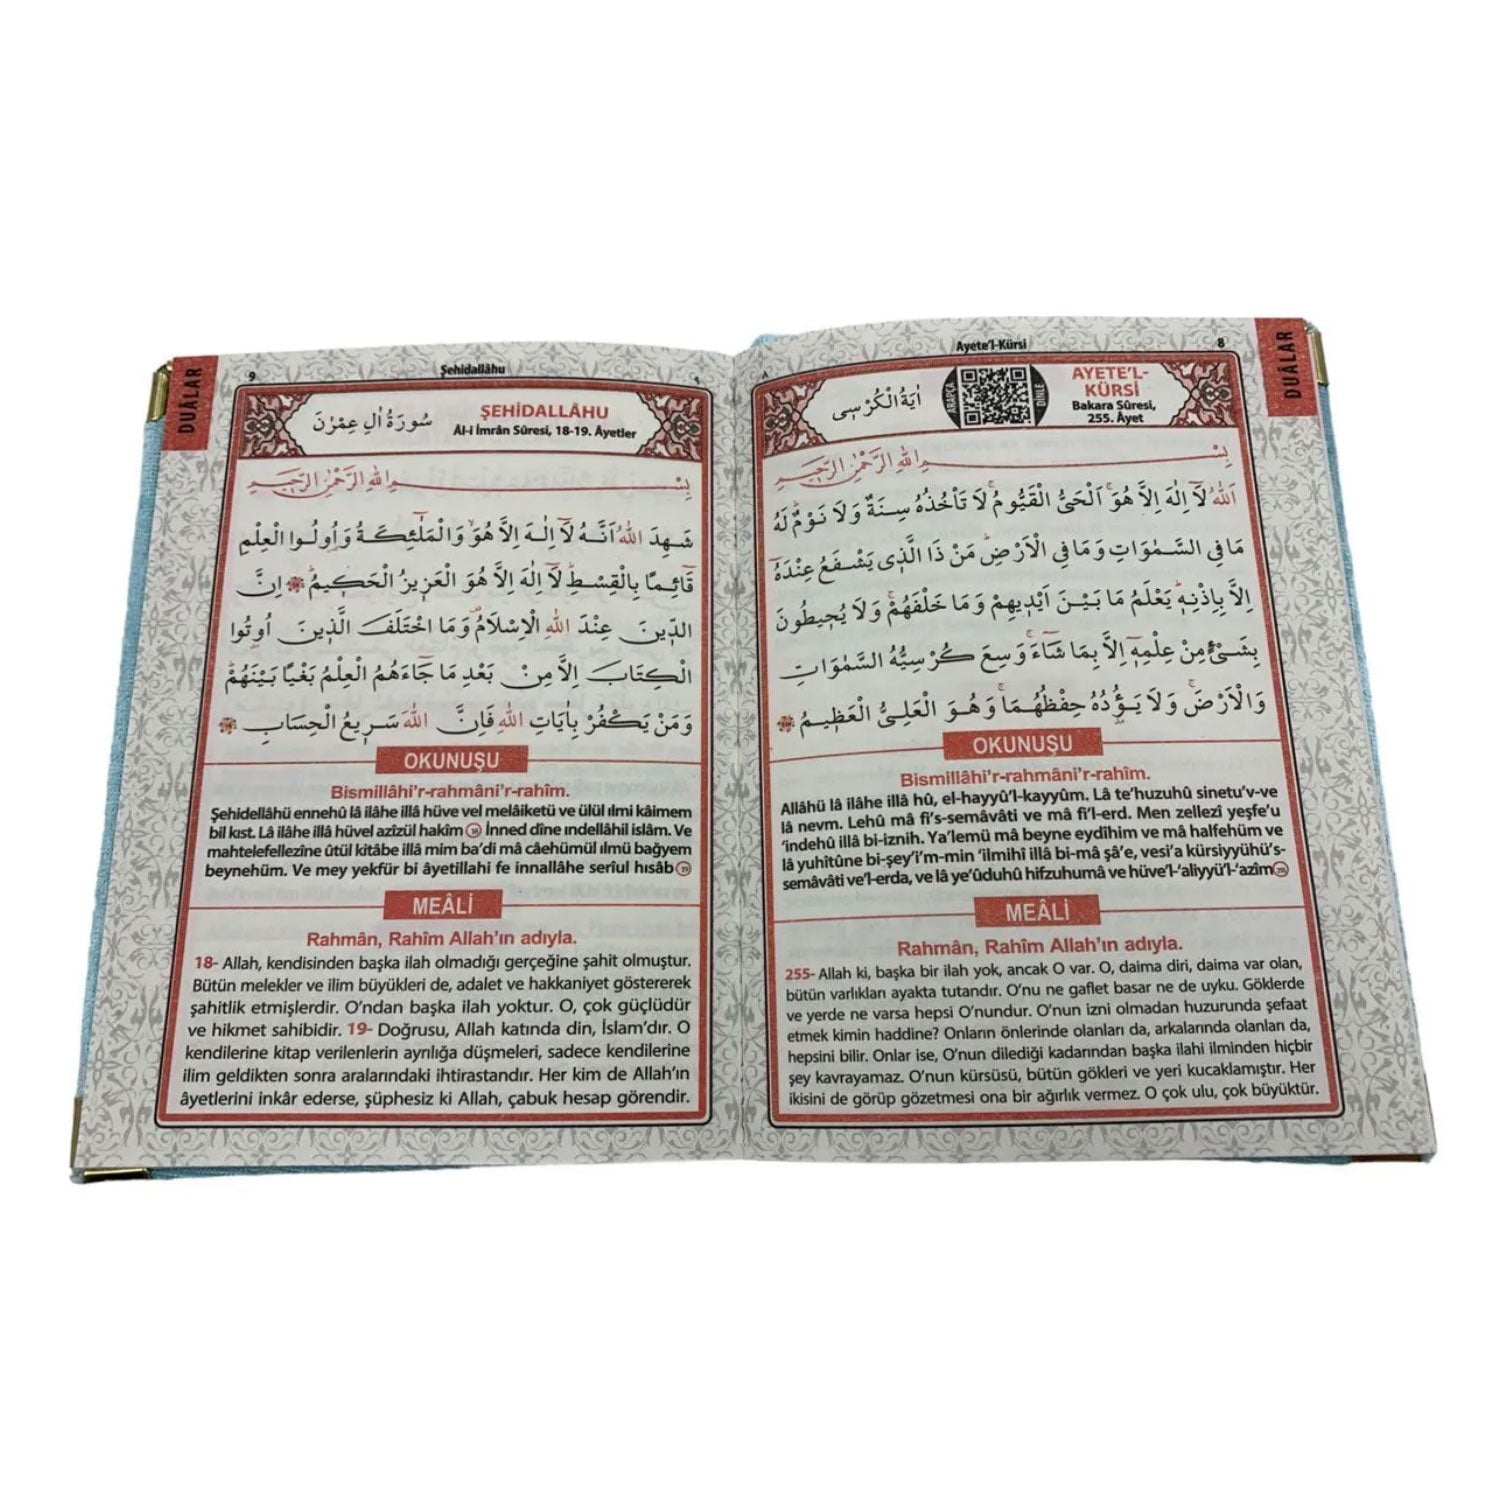 DUÂLAR
8
Ayete'l-Kürsi
٨
AYETE'L-
KÜRSİ
Bakara Sûresi,
255. Âyet
ARAPÇA
DİNLE
اٰيَةُ الْكُرْسِى
بِسْــــمِ اللّٰهِ الرَّحْمٰنِ الرَّحٖيمِ
اَللّٰهُ لَٓا اِلٰهَ اِلَّا هُوَۚ اَلْحَىُّ الْقَيُّومُۚ لَا تَأْخُذُهُ سِنَةٌ وَلَا نَوْمٌۜ لَهُ
مَا فِي السَّمٰوَاتِ وَمَا فِي الْاَرْضِۜ مَنْ ذَا الَّذٖى يَشْفَعُ عِنْدَهُٓ
اِلَّا بِاِذْنِهٖۜ يَعْلَمُ مَا بَيْنَ اَيْدٖيهِمْ وَمَا خَلْفَهُمْۚ وَلَا يُحٖيطُونَ
بِشَىْءٍ مِنْ عِلْمِهٖٓ اِلَّا بِمَا شَٓاءَۚ وَسِعَ كُرْسِيُّهُ السَّمٰوَاتِ
وَالْاَرْضَۚ وَلَا يَؤُ۫دُهُ حِفْظُهُمَاۚ وَهُوَ الْعَلِىُّ الْعَظٖيمُ
OKUNUŞU
Bismillâhi'r-rahmâni'r-rahîm.
Allâhü lâ ilâhe illâ hû, el-hayyû'l-kayyûm. Lâ te'huzuhû sinetu'v-ve
lâ nevm. Lehû mâ fi's-semâvâti ve mâ fi'l-erd. Men zellezî yeşfe'u
'indehû illâ bi-iznih. Ya'lemü mâ beyne eydîhim ve mâ halfehüm ve
lâ yuhîtûne bi-şey'i'm-min 'ilmihî illâ bi-mâ şâ'e, vesi'a kürsiyyühü's-
semâvâti ve'l-erda, ve lâ ye'ûduhû hifzuhumâ ve hüve'l-'aliyyü'l-'azîm 255
MEÂLİ
Rahmân, Rahîm Allah'ın adıyla.
255- Allah ki, başka bir ilah yok, ancak O var. O, daima diri, daima var olan,
bütün varlıkları ayakta tutandır. O'nu ne gaflet basar ne de uyku. Göklerde
ve yerde ne varsa hepsi O'nundur. O'nun izni olmadan huzurunda şefaat
etmek kimin haddine? Onların önlerinde olanları da, arkalarında olanları da,
hepsini bilir. Onlar ise, O'nun dilediği kadarından başka ilahi ilminden hiçbir
şey kavrayamaz. O'nun kürsüsü, bütün gökleri ve yeri kucaklamıştır. Her
ikisini de görüp gözetmesi ona bir ağırlık vermez. O çok ulu, çok büyüktür.
DUÂLAR
9
Şehidallâhu
٩
ŞEHİDALLÂHU
Âl-i İmrân Sûresi, 18-19. Âyetler
سُورَةُ اٰلِ عِمْرٰنَ
بِسْــــمِ اللّٰهِ الرَّحْمٰنِ الرَّحٖيمِ
شَهِدَ اللّٰهُ اَنَّهُ لَٓا اِلٰهَ اِلَّا هُوَۙ وَالْمَلٰٓئِكَةُ وَاُو۬لُوا الْعِلْمِ
قَٓائِمًا بِالْقِسْطِۜ لَٓا اِلٰهَ اِلَّا هُوَ الْعَزٖيزُ الْحَكٖيمُۜ اِنَّ
الدّٖينَ عِنْدَ اللّٰهِ الْاِسْلَامُ۠ وَمَا اخْتَلَفَ الَّذٖينَ اُو۫تُوا
الْكِتَابَ اِلَّا مِنْ بَعْدِ مَا جَٓاءَهُمُ الْعِلْمُ بَغْيًا بَيْنَهُمْۜ
وَمَنْ يَكْفُرْ بِاٰيَاتِ اللّٰهِ فَاِنَّ اللّٰهَ سَرٖيعُ الْحِسَابِ
OKUNUŞU
Bismillâhi'r-rahmâni'r-rahîm.
Şehidellâhü ennehû lâ ilâhe illâ hüve vel melâiketü ve ülül ılmi kâimem
bil kıst. Lâ ilâhe illâ hüvel azîzül hakîm 18 İnned dîne ındellâhil islâm. Ve
mahtelefellezîne ûtül kitâbe illâ mim ba'di mâ câehümül ılmü bağyem
beynehüm. Ve mey yekfür bi âyetillahi fe innallâhe serîul hısâb 19
MEÂLİ
Rahmân, Rahîm Allah'ın adıyla.
18- Allah, kendisinden başka ilah olmadığı gerçeğine şahit olmuştur.
Bütün melekler ve ilim büyükleri de, adalet ve hakkaniyet göstererek
şahitlik etmişlerdir. O'ndan başka ilah yoktur. O, çok güçlüdür
ve hikmet sahibidir. 19- Doğrusu, Allah katında din, İslam'dır. O
kendilerine kitap verilenlerin ayrılığa düşmeleri, sadece kendilerine
ilim geldikten sonra aralarındaki ihtirastandır. Her kim de Allah'ın
âyetlerini inkâr ederse, şüphesiz ki Allah, çabuk hesap görendir.